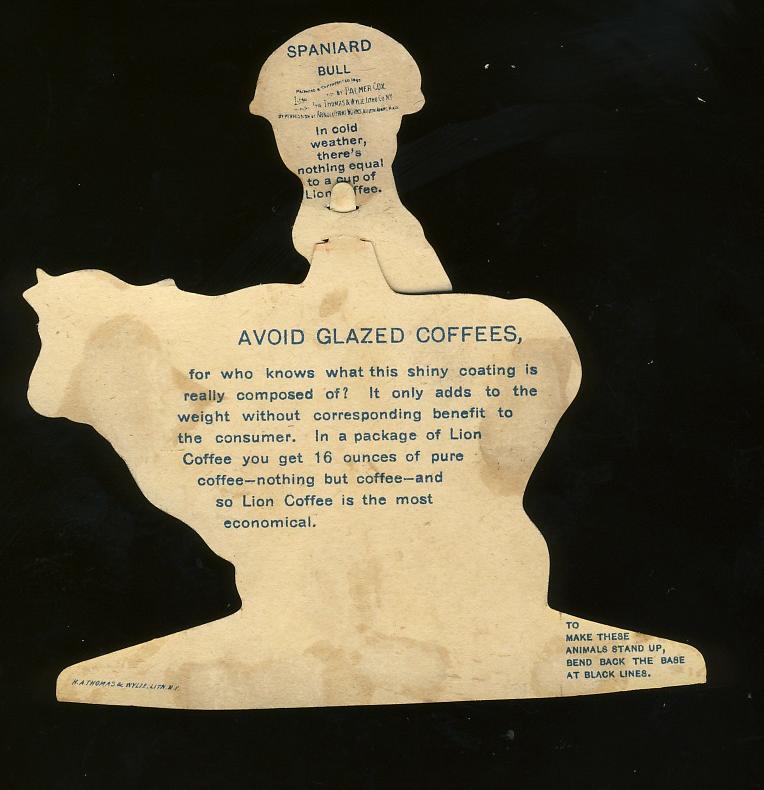 SPANIARD
BULL
BY PALMER COX
THOMAS & WYLIE LITHO CO NY
BY PERMISSION OF ARNOLD PRINT WORKS
In cold
weather,
there's
nothing equal
to a cup of
Lion ffee.
AVOID GLAZED COFFEES,
for who knows what this shiny coating is
really composed of? It only adds to the
weight without corresponding benefit to
the consumer. In a package of Lion
Coffee you get 16 ounces of pure
coffee—nothing but coffee—and
so Lion Coffee is the most
economical.
TO
MAKE THESE
ANIMALS STAND UP,
BEND BACK THE BASE
AT BLACK LINES.
H.A.THOMAS & WYLIE. LITH. N.Y.